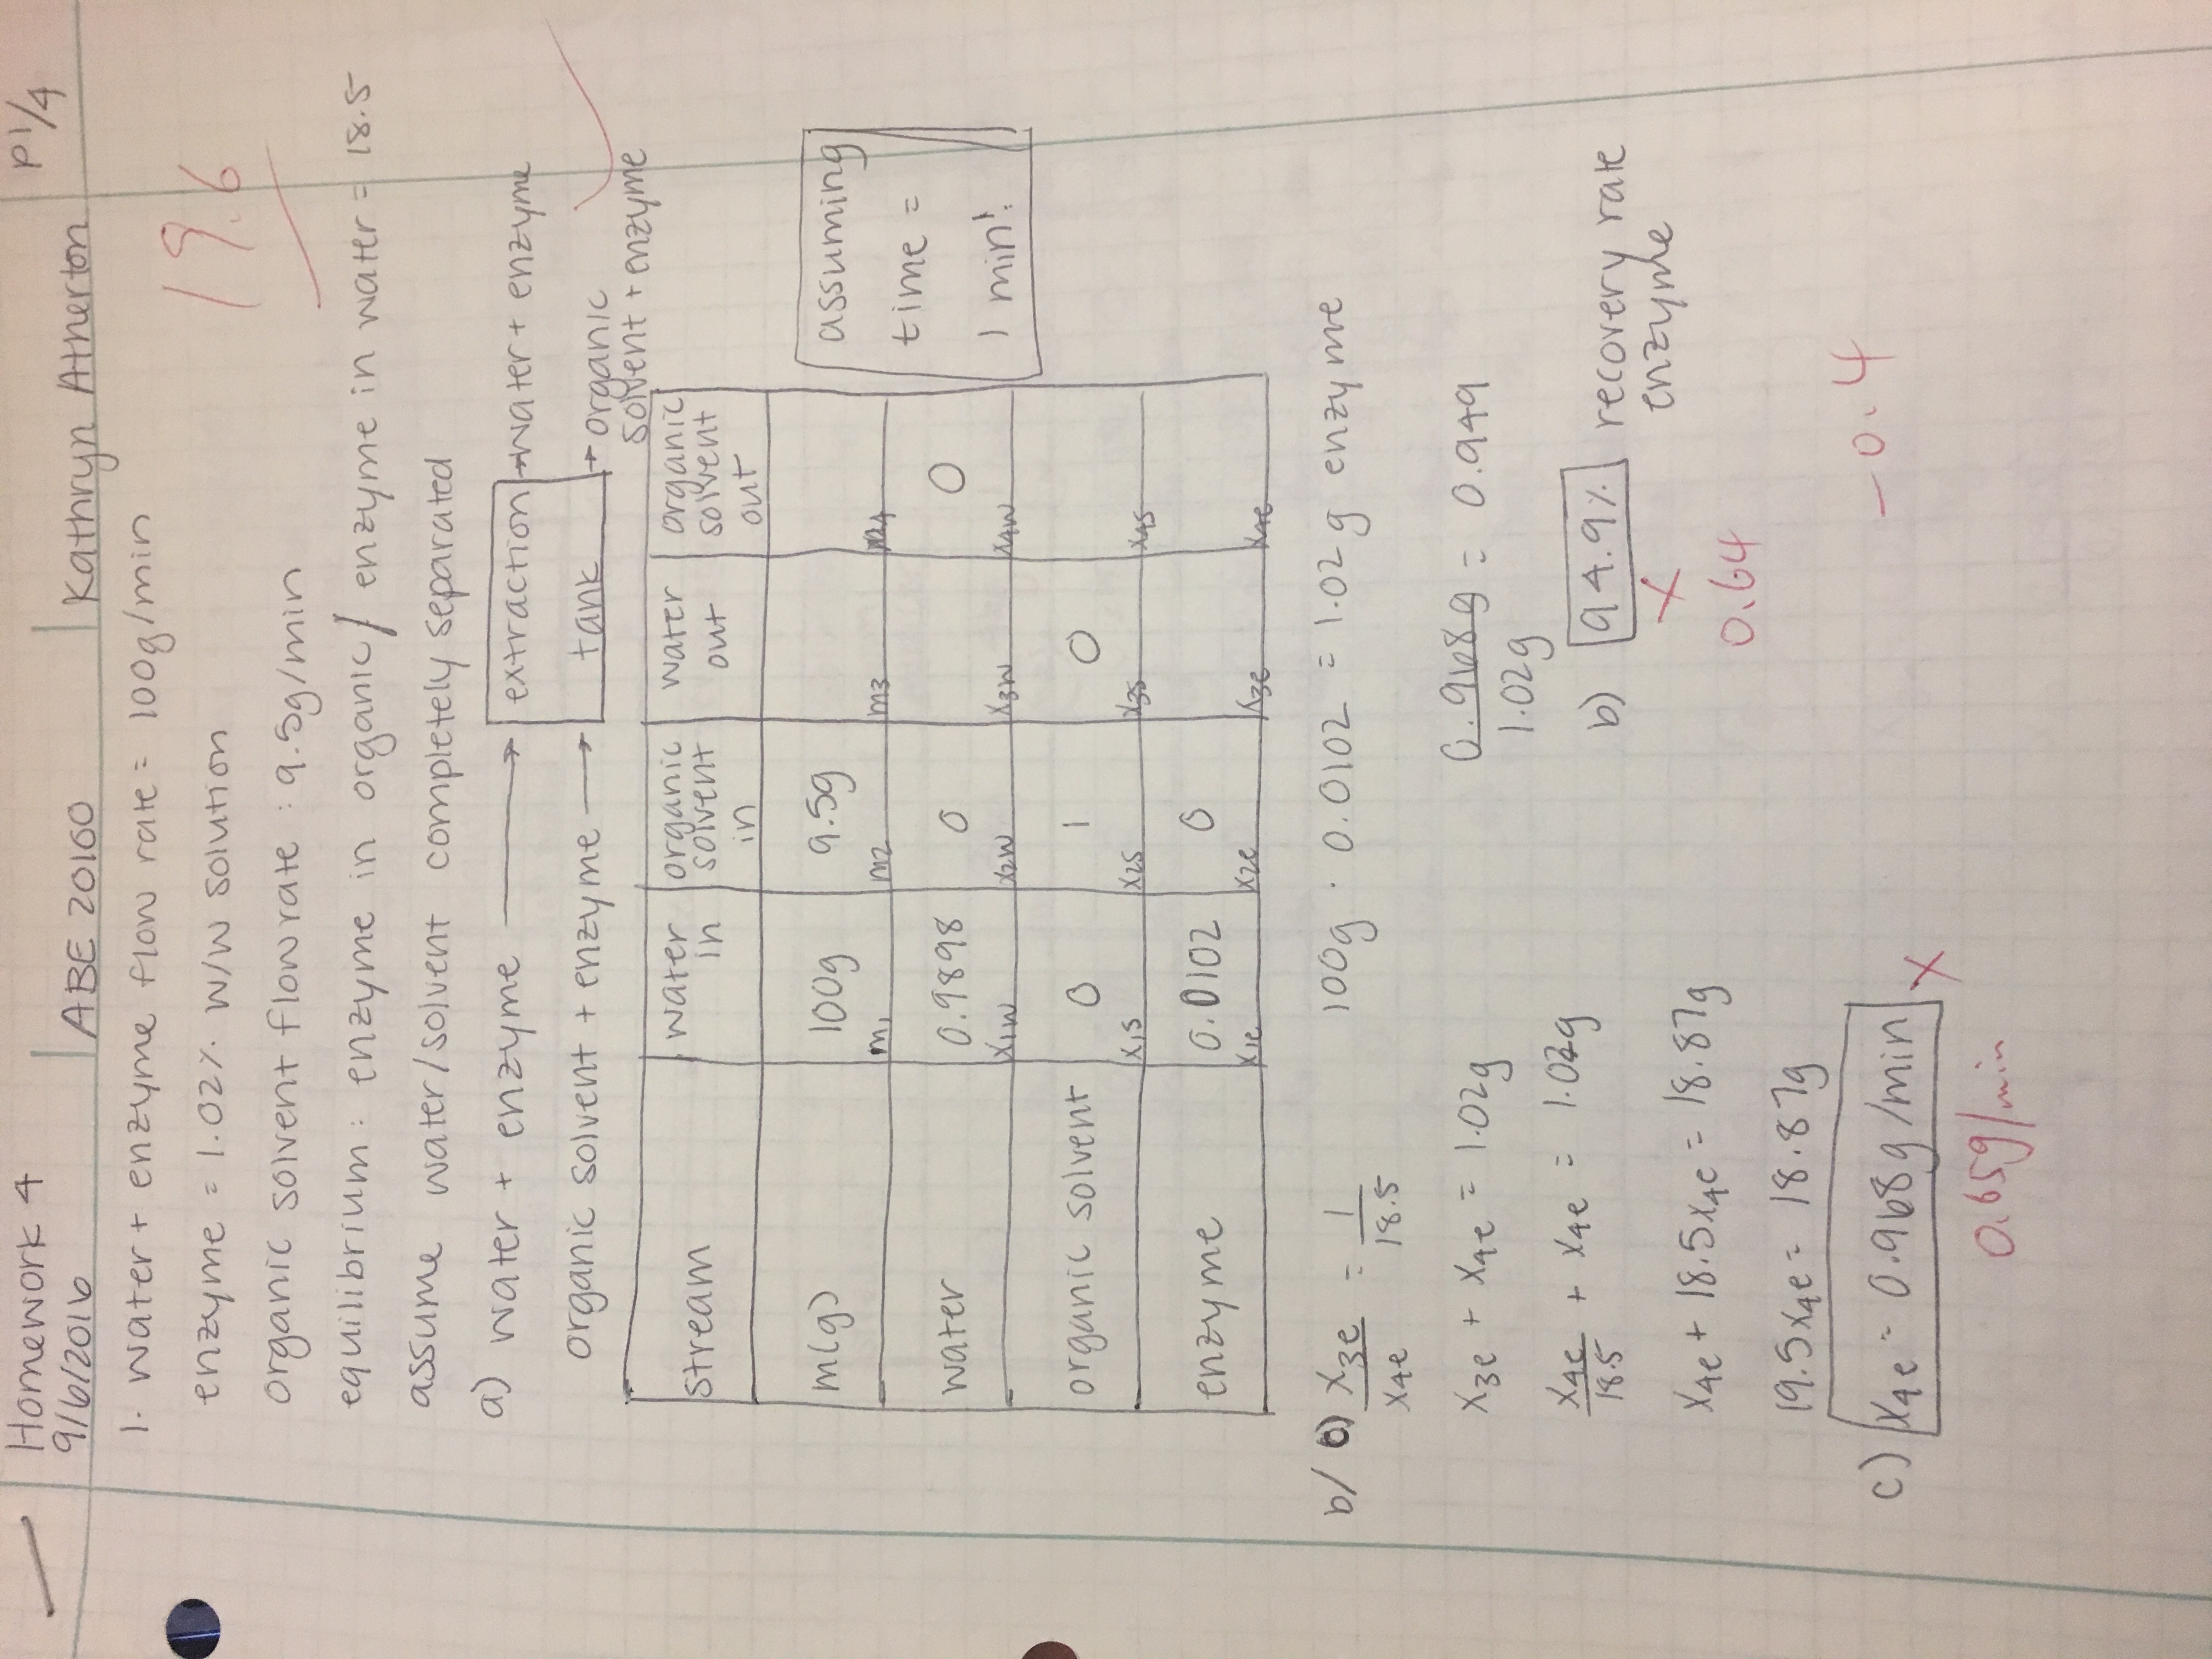 Homework 4
9/6/2016
ABE 20100
Kathryn Atherton
P1/4
1. water + enzyme flow rate = 100g/min
19.6
enzyme = 1.02% w/w solution
organic solvent flowrate : 9.5g/min
equilibrium: enzyme in organic/ enzyme in water = 18.5
assume water/solvent completely separated
a) water + enzyme → extraction → water + enzyme
organic solvent + enzyme → tank → organic
solvent + enzyme
stream
water in
organic solvent in
water out
organic solvent out
m(g) 100g 9.5g
m1 m2 m3 m4
water 0.9898 0 0
x1w x2w x3w x4w
organic solvent 0 1 0
x1s x2s x3s x4s
enzyme 0.0102 0
x1e x2e x3e x4e
assuming
time =
1 min!
b/ c) x3e/x4e = 1/18.5
100g · 0.0102 = 1.02g enzyme
x3e + x4e = 1.02g
0.968g/1.02g = 0.949
x4e/18.5 + x4e = 1.02g
b) 94.9% recovery rate
enzyme
X
0.64
x4e + 18.5x4e = 18.87g
19.5x4e = 18.87g
-0.4
c) x4e = 0.968g/min X
0.65g/min